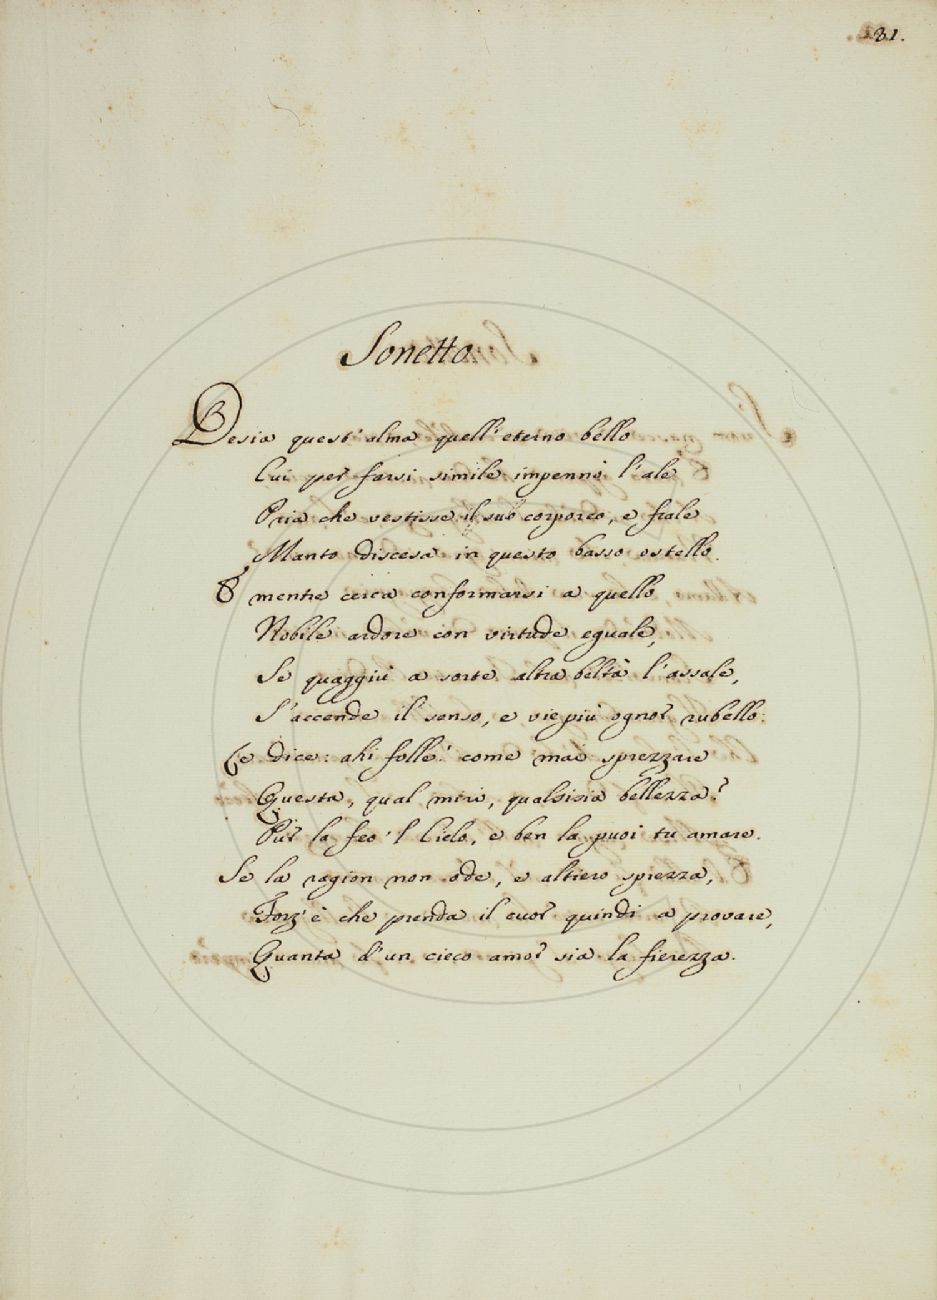 81.
Sonetto
Desia quest'alma quell'eterno bello
Cui per farsi simile impennò l'ale
Pria che vestisse il suo corporeo, e frale
Manto discesa in questo basso ostello.
E mentre cerca conformarsi a quello
Nobile ardore con virtude eguale,
Se quaggiù a sorte altra beltà l'assale,
S'accende il senso, e vie più ognor rubello:
E dice: ahi folle! come mai sprezzare
Questa, qual miri, qualsisia bellezza?
Pur la feo 'l Cielo, e ben la puoi tu amare.
Se la ragion non ode, e altiero sprezza,
Forz'è che prenda il cuor quindi a provare,
Quanta d'un cieco amor sia la fierezza.